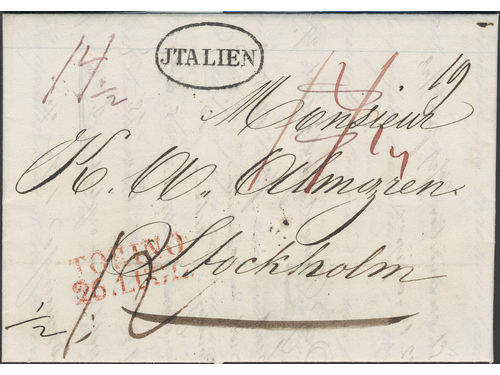 JTALIEN
14 1/2
19
Monsieur
K. A. Almgren
Stockholm
TORINO
26
1/2